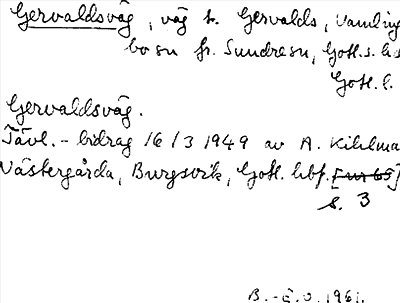 Gervaldsväg, väg t. Gervalds, Vamling
bo sn fr. Sundresn, Gotl. s. hd
Gotl. l.
Gervaldsväg.
Tävl.-bidrag 16/3 1949 av A. Kihlma
Västergårda, Burgsvik, Gotl. hbf.
s. 3
B.-E.O. 1961.